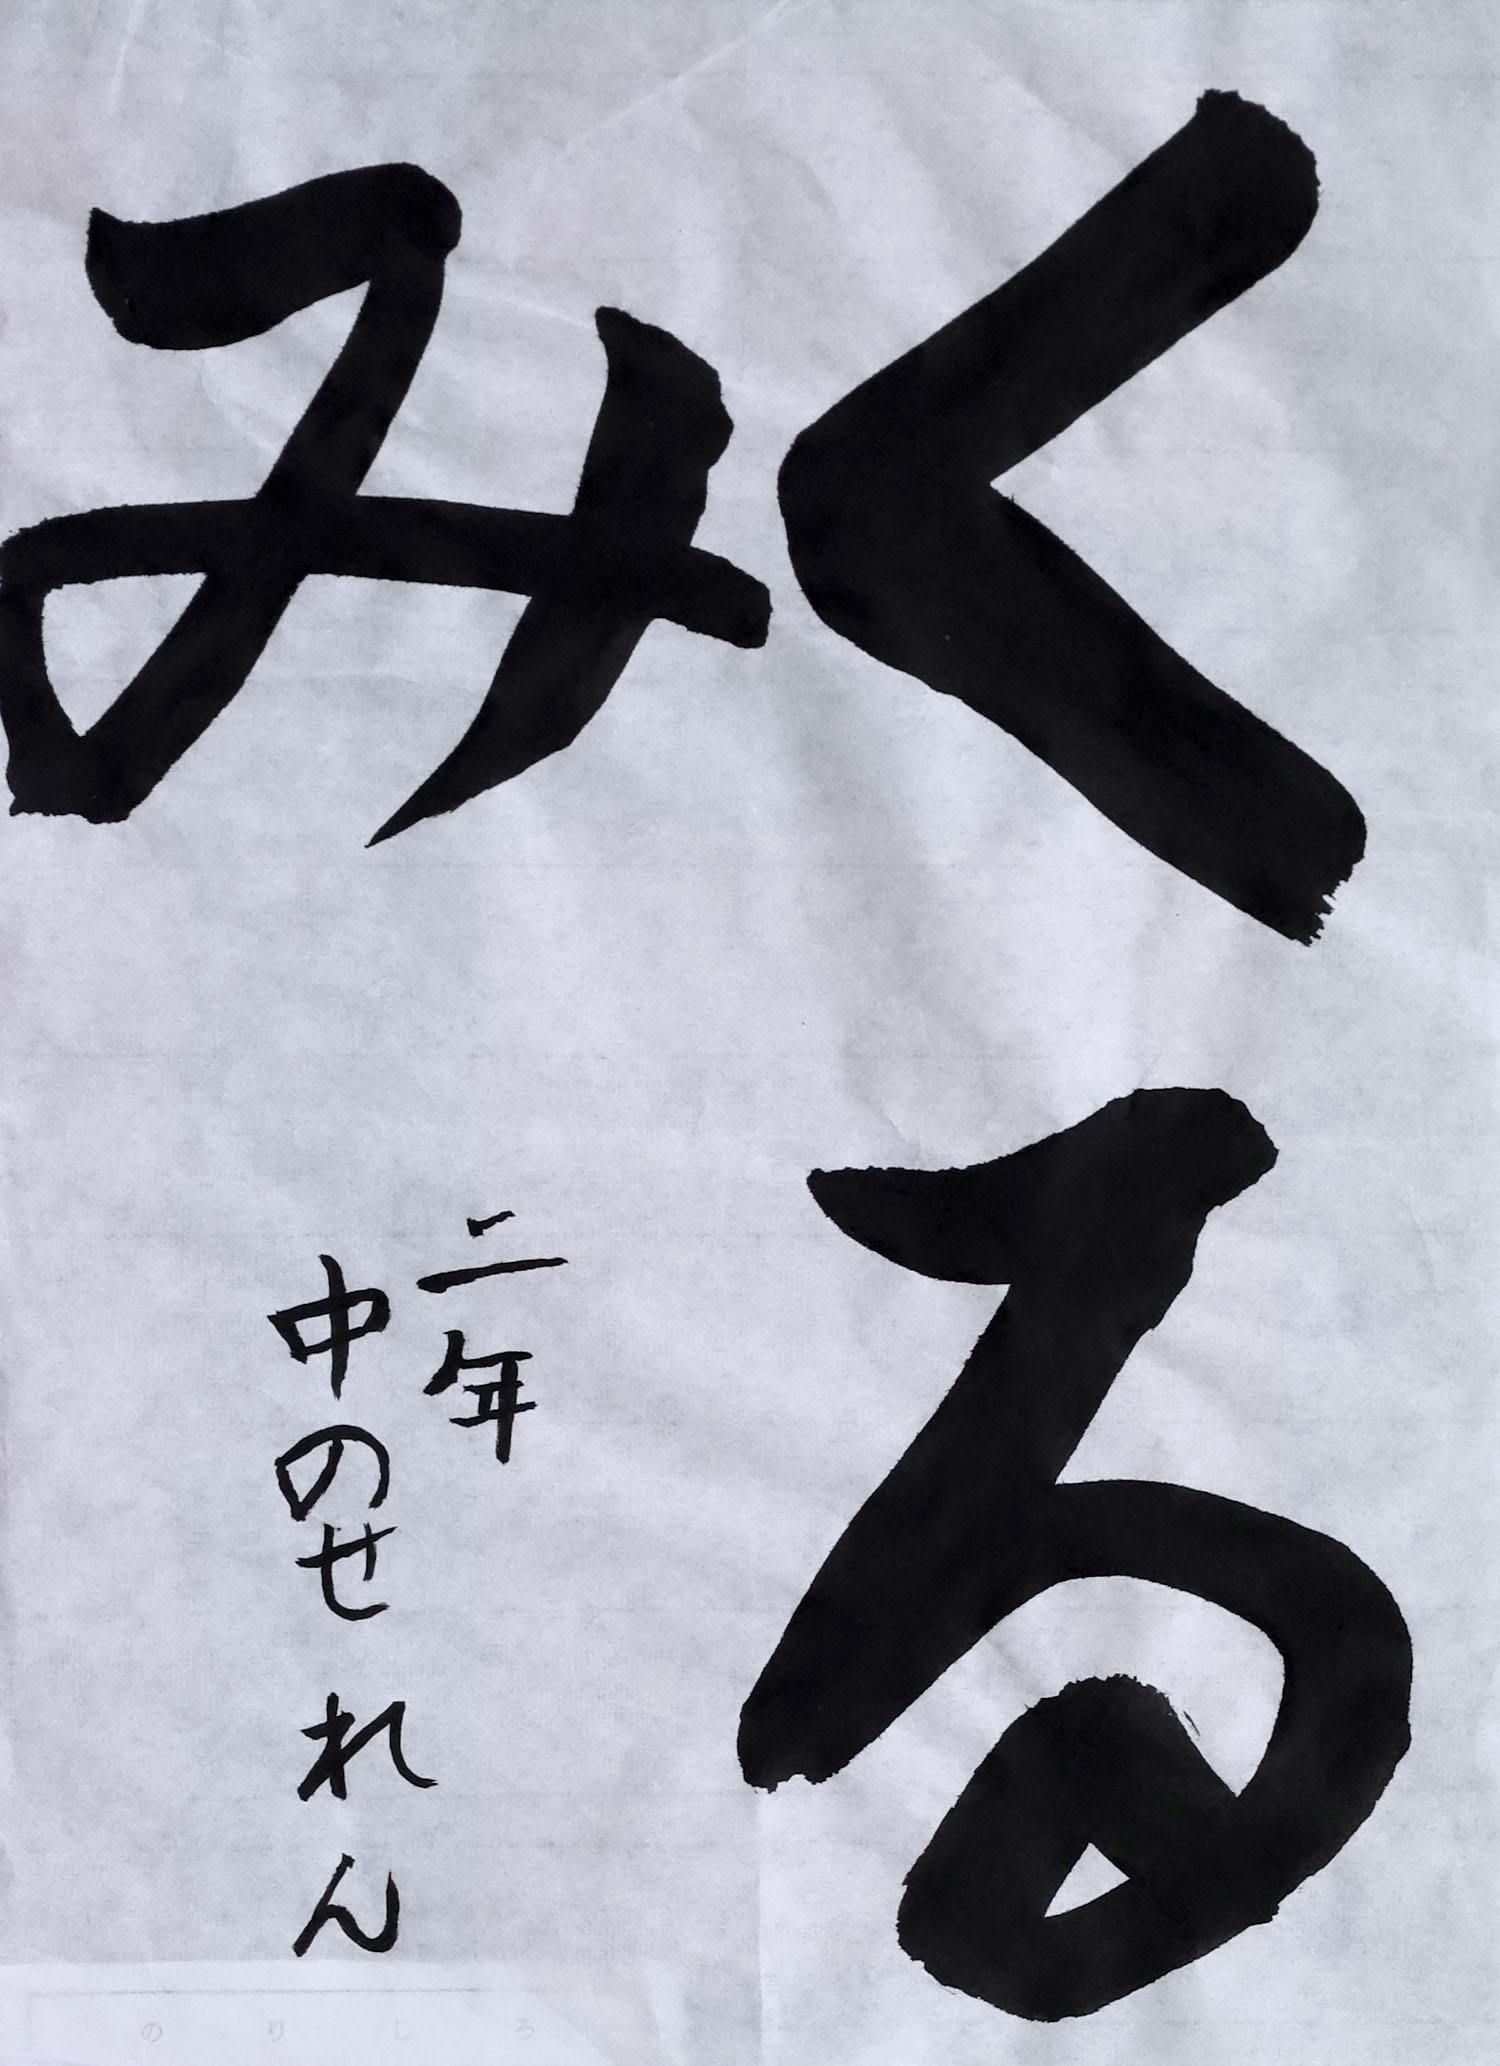 くる
み
二年
中のせれん
のりしろ